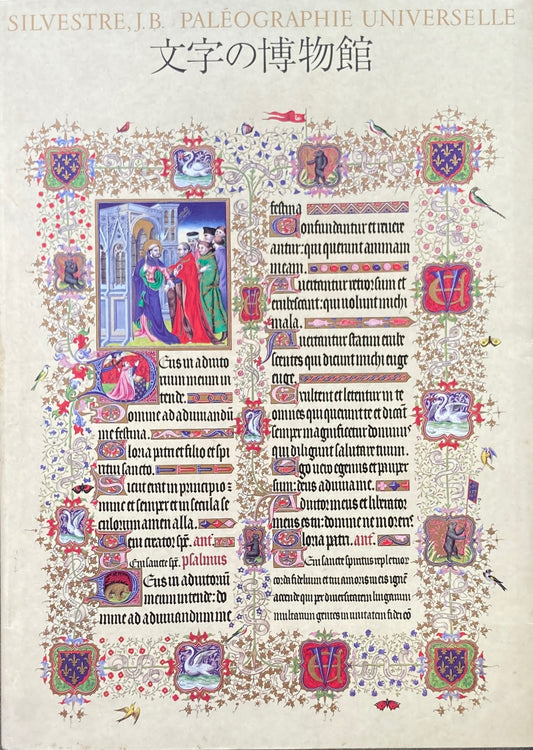 SILVESTRE, J.B. PALÉOGRAPHIE UNIVERSELLE
文字の博物館
Deus in adiuto
rium meum in
tende.
Domine ad adiuuandū
me festina.
Gloria patri et filio et spi
ritui sancto.
Sicut erat in principio:
nunc et semper et in secula se
culorum amen alla.
Veni creator spc̄. ant.
Veni sancte spc̄. psalmus
Deus in adiutoriū
meum intende: do
mine ad adiuuandum me
festina
Confundantur et reuere
antur: qui querunt animam
meam.
Auertantur retrorsum et
erubescant: qui uolunt michi
mala.
Auertantur statim erube
scentes qui dicunt michi euge
euge.
Exultent et letentur in te
omnes qui querunt te et dicāt
semper magnificetur dominus
qui diligunt salutare tuum.
Ego uero egenus et pauper
sum: deus adiuua me.
Adiutor meus et liberator
meus es tu: domine ne moreris
Gloria patri. ant.
Veni sancte spiritus reple tuor
corda fidelium et tui amoris in eis ignē
accende qui per diuersitatem linguarum
multarum gentes in unitatem fidei cō